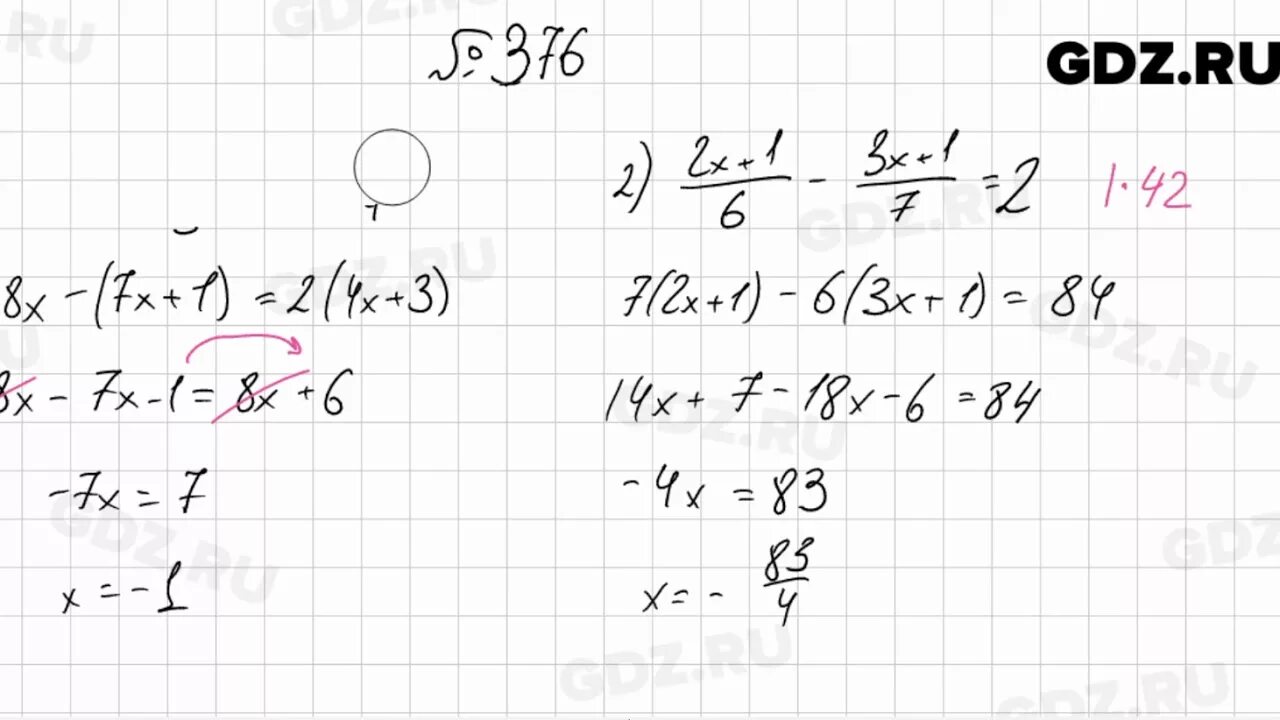 № 376
GDZ.RU
8x - (7x + 1) = 2(4x + 3)
8x - 7x - 1 = 8x + 6
-7x = 7
x = -1
2) \frac{2x + 1}{6} - \frac{3x + 1}{7} = 2 | · 42
7(2x + 1) - 6(3x + 1) = 84
14x + 7 - 18x - 6 = 84
-4x = 83
x = - \frac{83}{4}